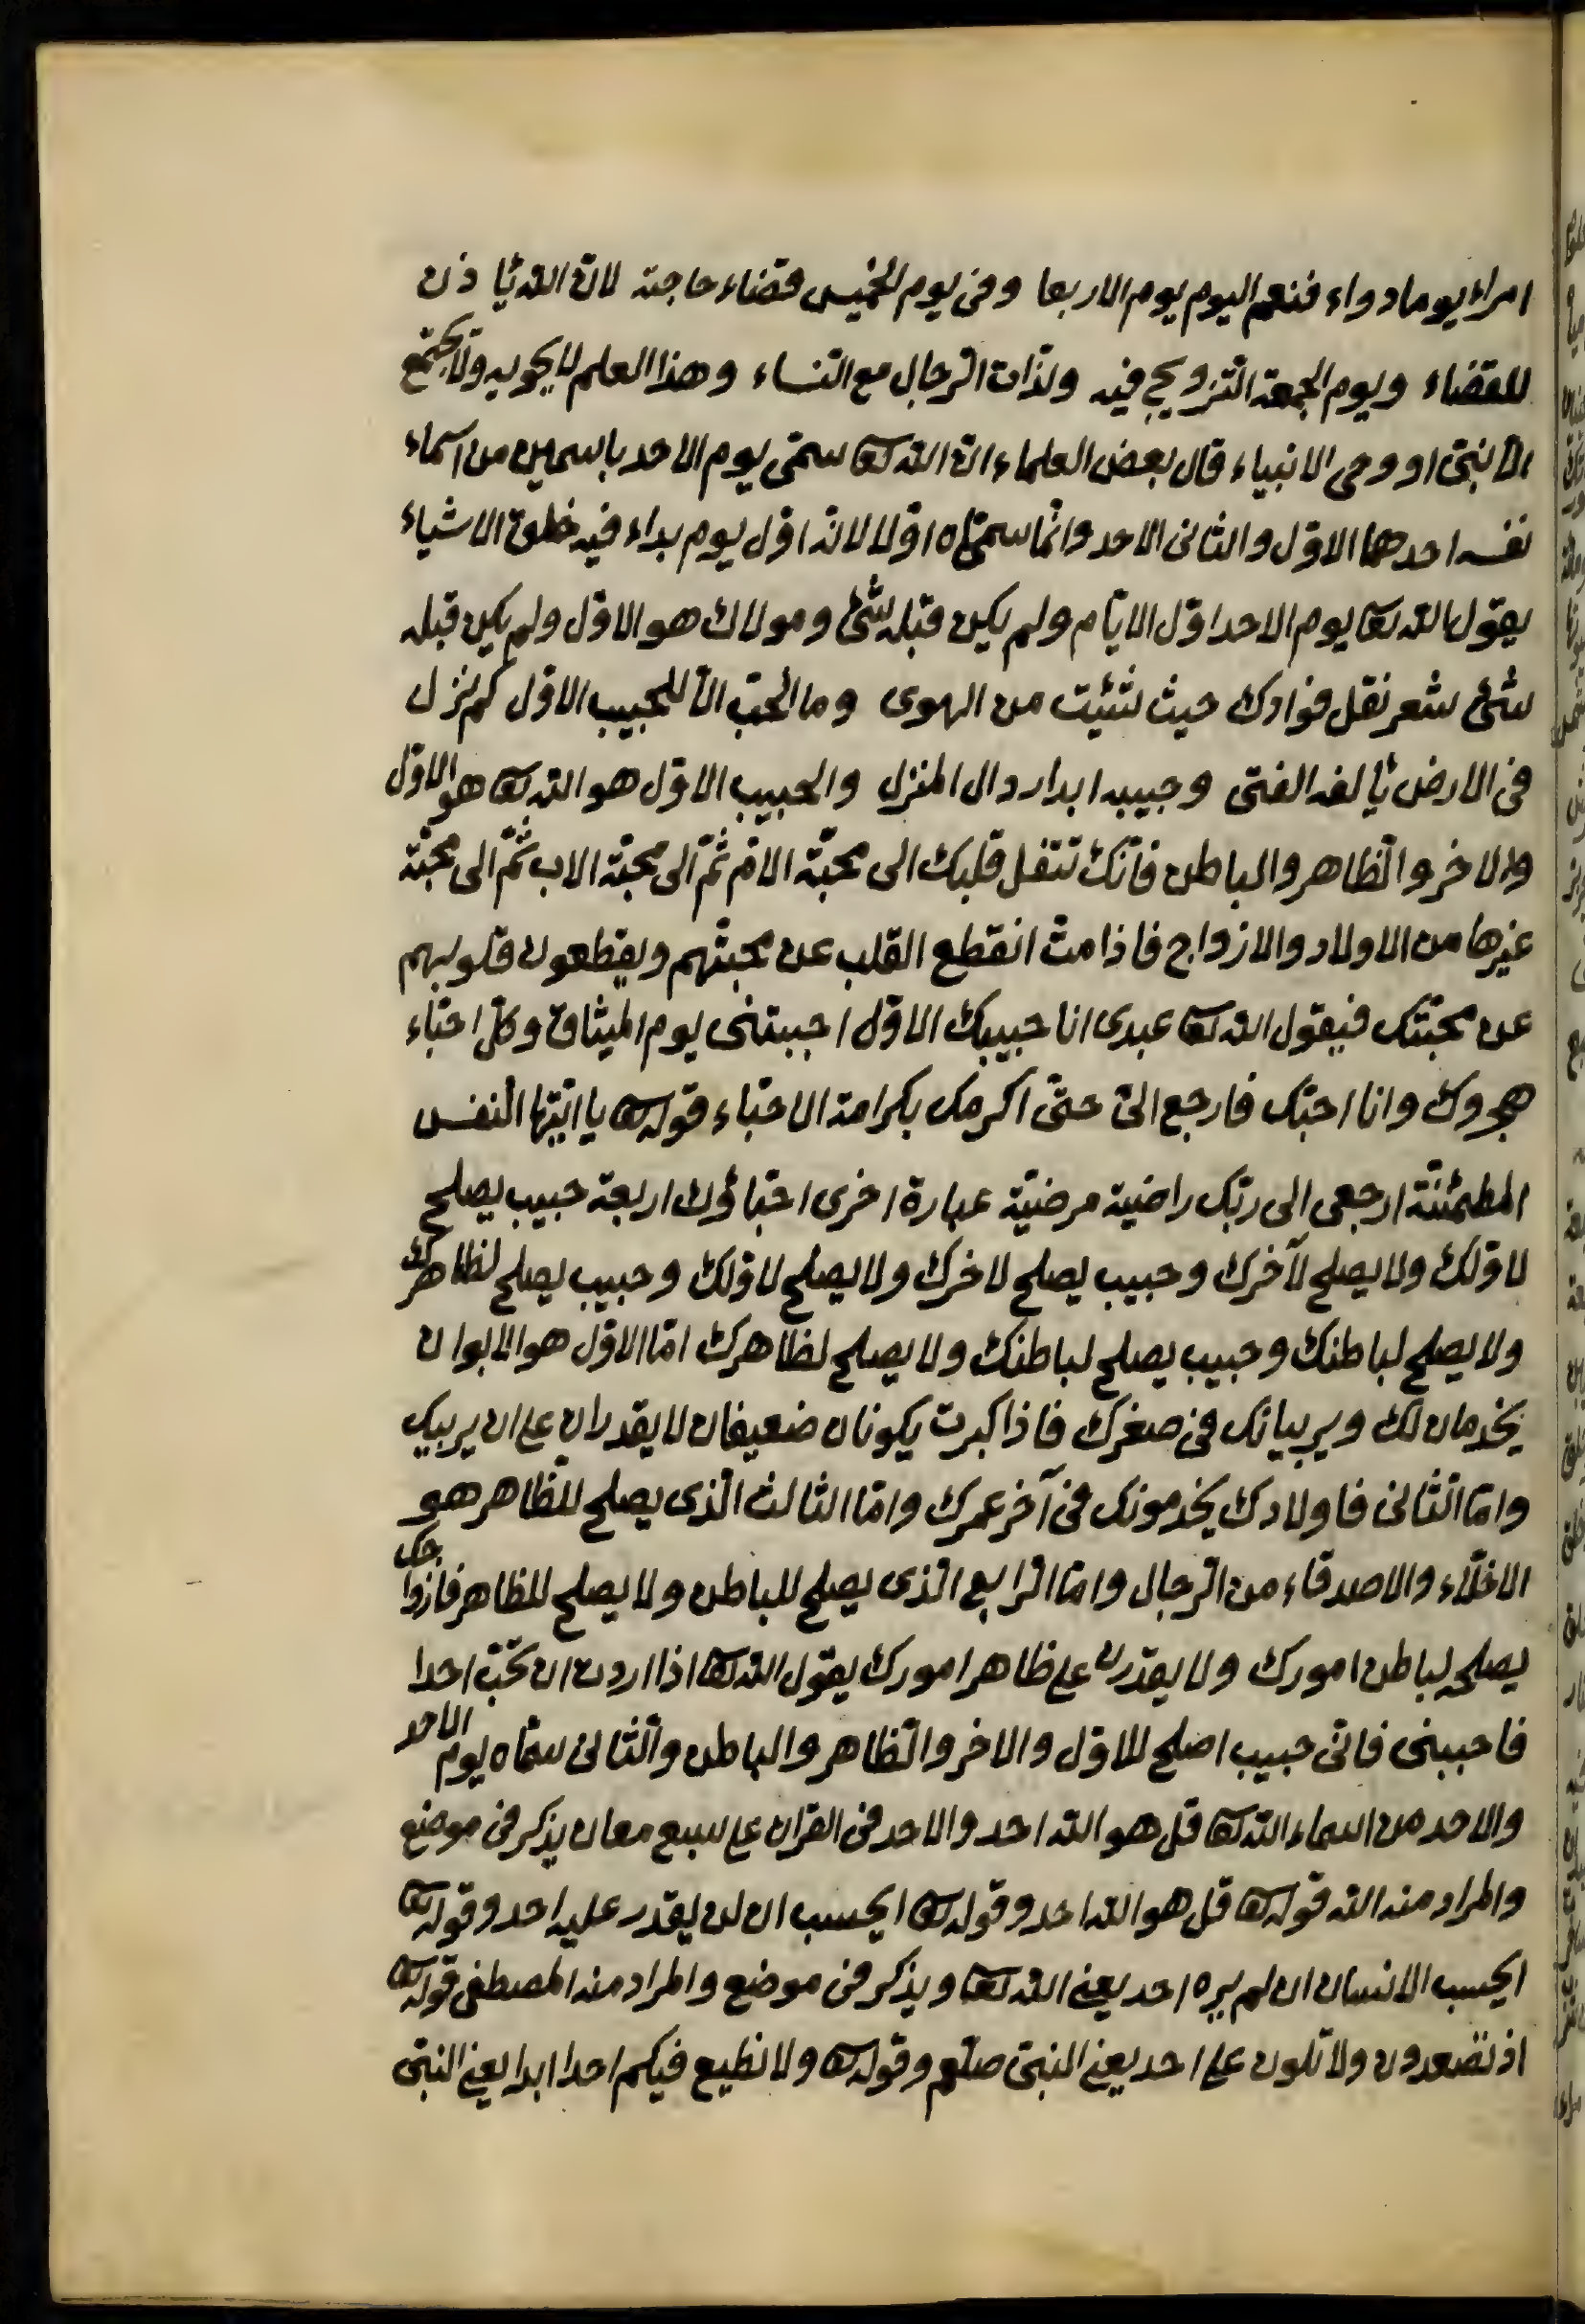 امراء يوما دواء فنعم اليوم يوم الاربعا وفى يوم الخميس قضاء حاجة لان الله يأذن
للقضاء ويوم الجمعة التزويج فيه ولذات الرجال مع النساء وهذا العلم لا يحويه ولا يجتمع
الا نبى او وحى الانبياء قال بعض العلماء ان الله تعا سمى يوم الاحد باسمين من اسماء
نفسه احدهما الاول والثانى الاحد وانما سماه اولا لانه اول يوم بداء فيه خلق الاشياء
يقول الله تعا يوم الاحد اول الايام ولم يكن قبله شئ ومولاك هو الاول ولم يكن قبله
شئ شعر نقل فوادك حيث شئت من الهوى وما الحب الا للحبيب الاول كم نزل
فى الارض يألفه الفتى وحبيبه ابدا ردال المنزل والحبيب الاول هو الله تعا هو الاول
والاخر والظاهر والباطن فانك تنقل قلبك الى محبة الام ثم الى محبة الاب ثم الى محبة
غيرها من الاولاد والازواج فاذا مت انقطع القلب عن محبتهم ويقطعون قلوبهم
عن محبتك فيقول الله تعا عبدى انا حبيبك الاول احببتنى يوم الميثاق وكل احباء
هجروك وانا احبك فارجع الى حتى اكرمك بكرامة الاحباء قوله تعا يا ايتها النفس
المطمئنة ارجعى الى ربك راضية مرضية عبارة اخرى احباؤك اربعة حبيب يصلح
لاولك ولا يصلح لآخرك وحبيب يصلح لاخرك ولا يصلح لاولك وحبيب يصلح لظاهرك
ولا يصلح لباطنك وحبيب يصلح لباطنك ولا يصلح لظاهرك اما الاول هو الابوان
يخدمان لك ويربيانك فى صغرك فاذا كبرت يكونان ضعيفان لا يقدران على ان يربيك
واما الثانى فاولادك يخدمونك فى آخر عمرك واما الثالث الذى يصلح للظاهر هو
الاخلاء والاصدقاء من الرجال واما الرابع الذى يصلح للباطن ولا يصلح للظاهر فازواجك
يصلح لباطن امورك ولا يقدرن على ظاهر امورك يقول الله تعا اذا اردت ان تحب احدا
فاحببنى فانى حبيب اصلح للاول والاخر والظاهر والباطن والثانى سماه يوم الاحد
والاحد من اسماء الله تعا قل هو الله احد والاحد فى القران على سبع معان يذكر فى موضع
والمراد منه الله قوله تعا قل هو الله احد وقوله تعا ايحسب ان لن يقدر عليه احد وقوله تعا
ايحسب الانسان ان لم يره احد يعنى الله تعا ويذكر فى موضع والمراد منه المصطفى قوله تعا
اذ تصعدون ولا تلون على احد يعنى النبى صلعم وقوله تعا ولا نطيع فيكم احدا ابدا يعنى النبى